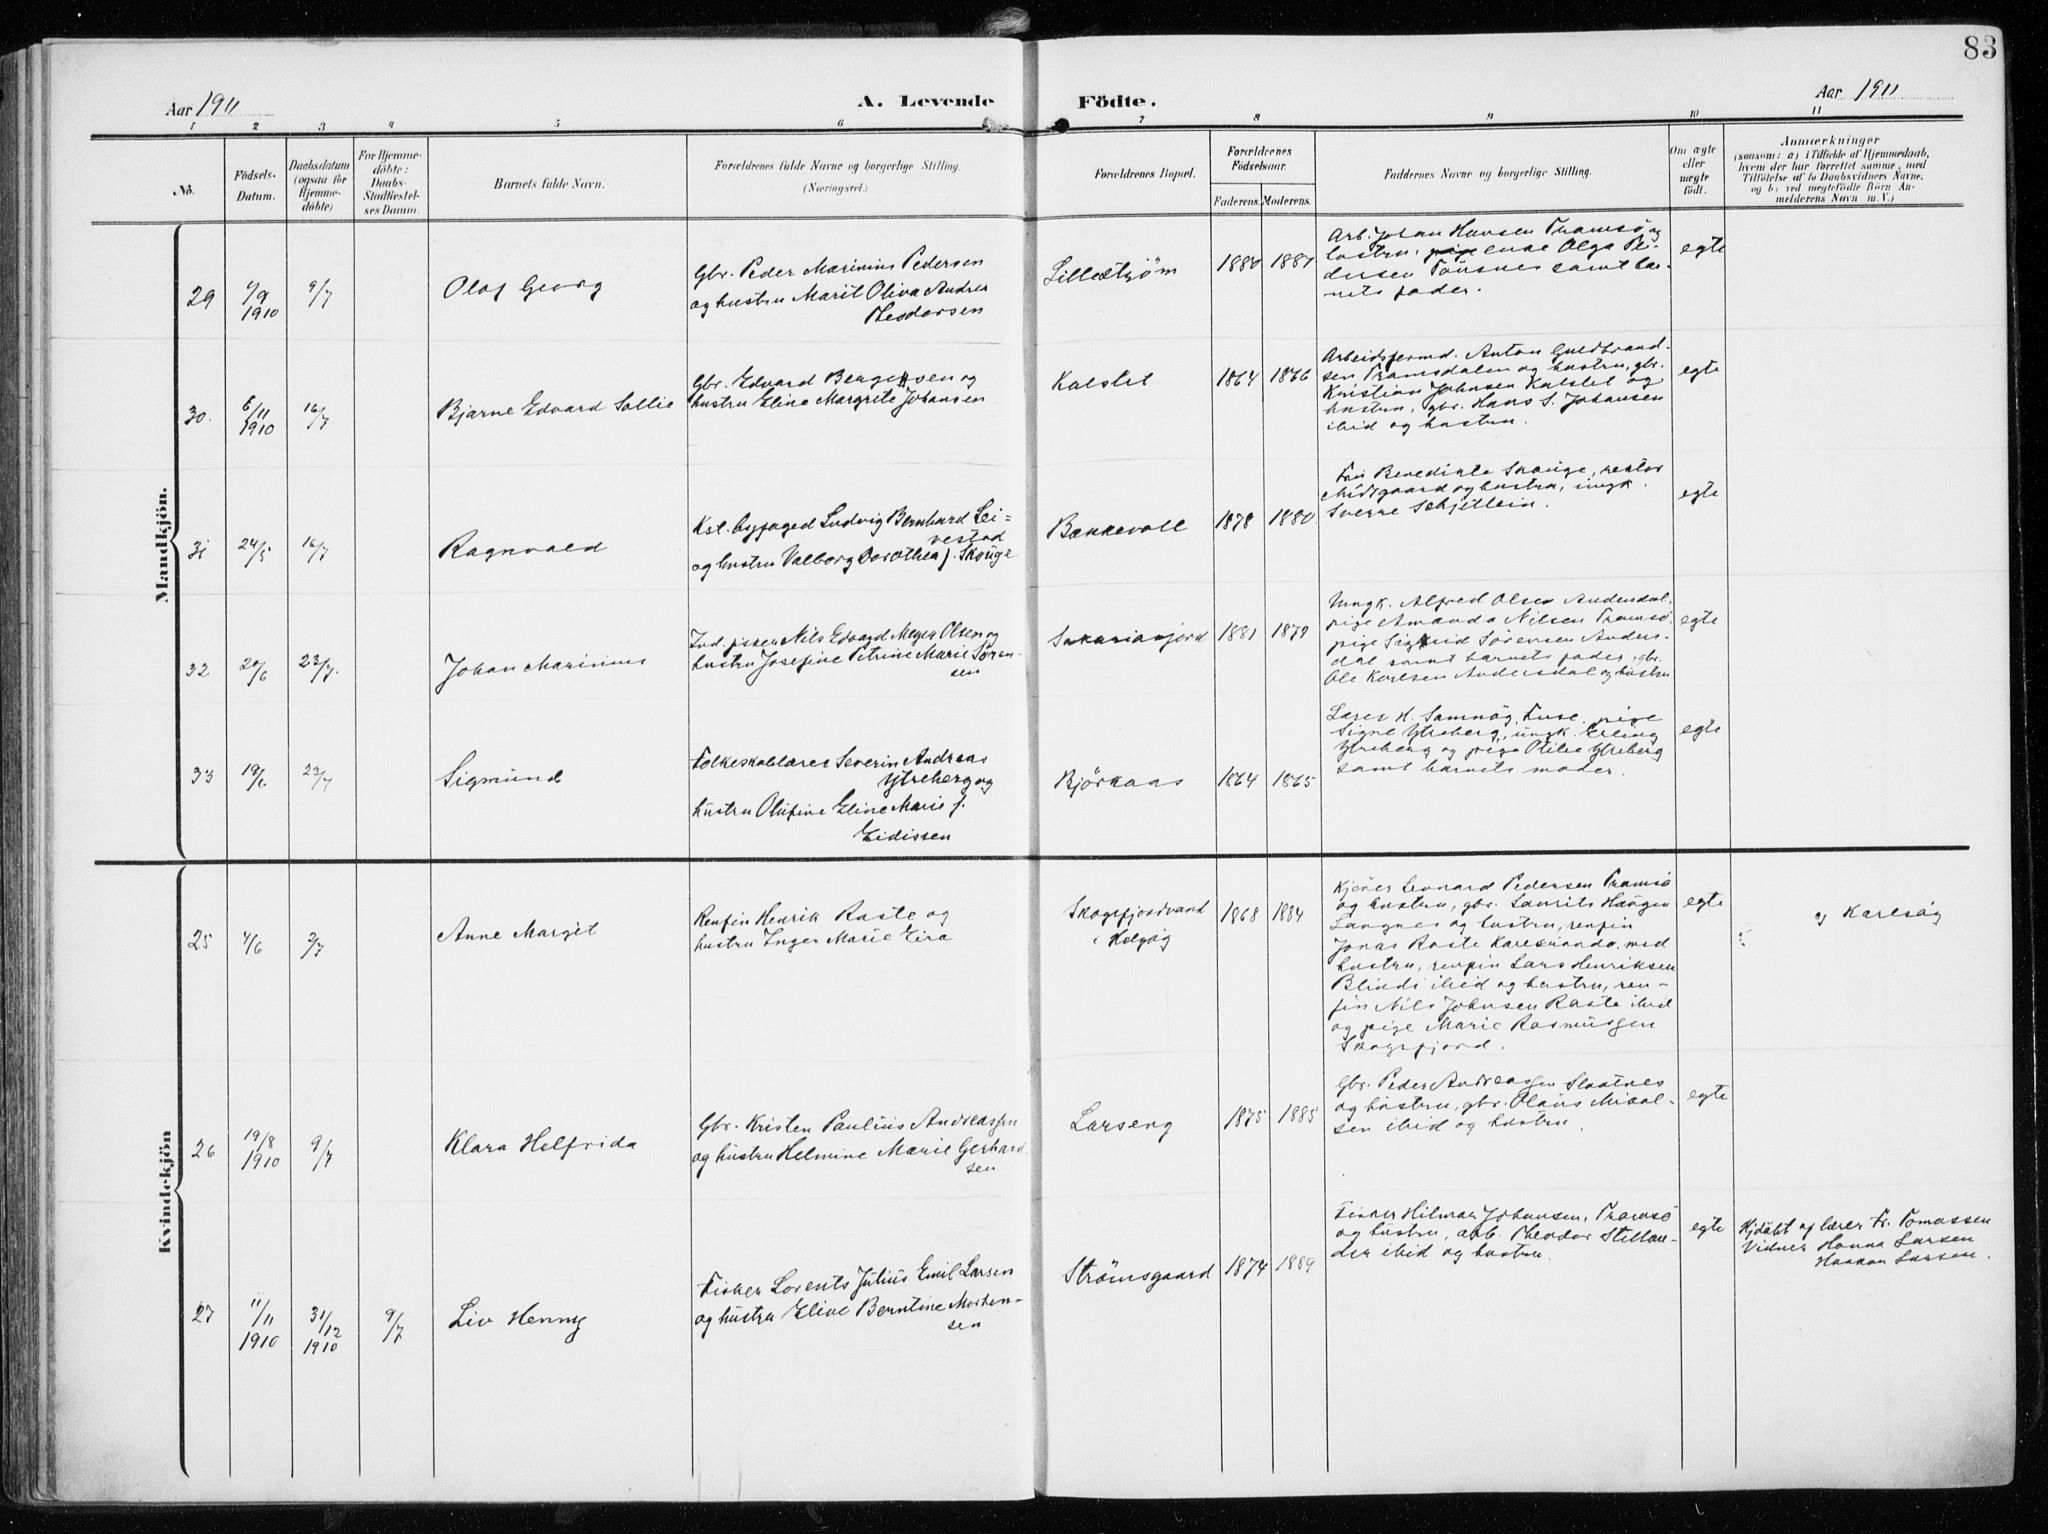 83
Aar 1911
A. Levende
Födte.
Aar 1911
1 2 3 4 5 6 7 8 9 10 11
No.
Födsels-
Datum.
Daabsdatum
(ogsaa for
Hjemme-
döbte)
For Hjemme-
döbte:
Daabs-
Stadfæstel-
ses Datum.
Barnets fulde Navn.
Forældrenes fulde Navne og borgerlige Stilling.
(Næringsvei.)
Forældrenes Bopæl.
Forældrenes
Födselsaar.
Faderens. Moderens.
Faddernes Navne og borgerlige Stilling.
Om ægte
eller
uægte
födt.
Anmærkninger
(saasom: a) i Tilfælde af Hjemmedaab,
hvem der har forrettet samme, med
Tilföielse af to Daabsvidners Navne,
og b) ved uægtefödte Börn An-
melderens Navn m. V.)
Mandkjön.
29
1910
9/7
Olaf Georg
Gbr. Peder Marinius Pedersen
og hustru Marit Oliva Andrea
Theodorsen
1880 1887
Arb. Johan Hansen Tromsö og
hustru, pige enke Olga Pe-
dersen Tönsnes samt bar-
nets fader.
egte
30.
6/11
1910
16/7
Bjarne Edvard Sollie
Gbr. Edvard Bergersen og
hustru Eline Margrete Johansen
Kalslet
1864 1866
Arbeidsformd. Anton Guldbrand-
sen Tromsdalen og hustru, gbr.
Kristian Johnsen Kalslet og
hustru, gbr. Hans S. Johansen
ibid og hustru.
egte
31
24/5
16/7
Ragnvald
Kst. byfoged Ludvig Bernhard Lei=
vestad
og hustru Valborg Dorothea f. Skouge
Bakkevoll
1878 1880
Fru Benedikte Skouge, rektor
Midsgaard og hustru, ungk.
Sverre Schjetlein.
egte
32
20/6
23/7.
Johan Marinius
Ind. fisker Nils Edvard Meyer Olsen og
hustru Josefine Petrine Marie Sören-
sen
Sakariasjord
1881 1879
Ungk. Alfred Olsen Andersdal,
pige Amanda Nilsen Tromsö,
pige Sigrid Sörensen Anders-
dal samt barnets fader, gbr.
Ole Karlsen Andersdal og hustru
egte
33
19/6
23/7
Sigmund
Folkeskolelærer Severin Andreas
Ytreberg og
hustru Olufine Eline Marie f.
Eidissen
Bjørkaas
1864 1865
Lærer H. Samnöy, Fuse, pige
Signe Ytreberg, ungk. Erling
Ytreberg og pige Otilie Ytreberg
samt barnets moder.
egte
Kvindekjön
25
4/6
2/7
Anne Margit
Renfin Henrik Raste og
hustru Inger Marie Eira
Skogsfjordvand
i Helgöy
1868 1884
Kjører Leonard Pedersen Tromsö
og hustru, gbr. Laurits Haugen
Langnes og hustru, renfin
Jonas Raste Karesuando, med
hustru, renfin Lars Henriksen
Blindi ibid og hustru, ren-
fin Nils Johnsen Raste ibid
og pige Marie Rasmussen
Skogsfjord.
egte
af Karlsöy
26
19/8
1910
9/7
Klara Helfrida
Gbr. Kristen Paulius Andreassen
og hustru Helmine Marie Gerhard-
sen
Larseng
1875 1885
Gbr. Peder Andreassen Slaatnes
og hustru, gbr. Olaus Mikal-
sen ibid og hustru.
egte
27
11/11
1910
31/12
1910
9/7
Liv Henny
Fisker Lorents Julius Emil Larsen
og hustru Eline Berntine Morten-
sen
Strömsgaard
1874 1889
Fisker Hilmar Johansen, Tromsö
og hustru, arb. Theodor Stellan-
der ibid og hustru.
egte
Hjdöbt af lærer Fr. Tomassen
Vidner Hanna Larsen
Haakon Larsen.